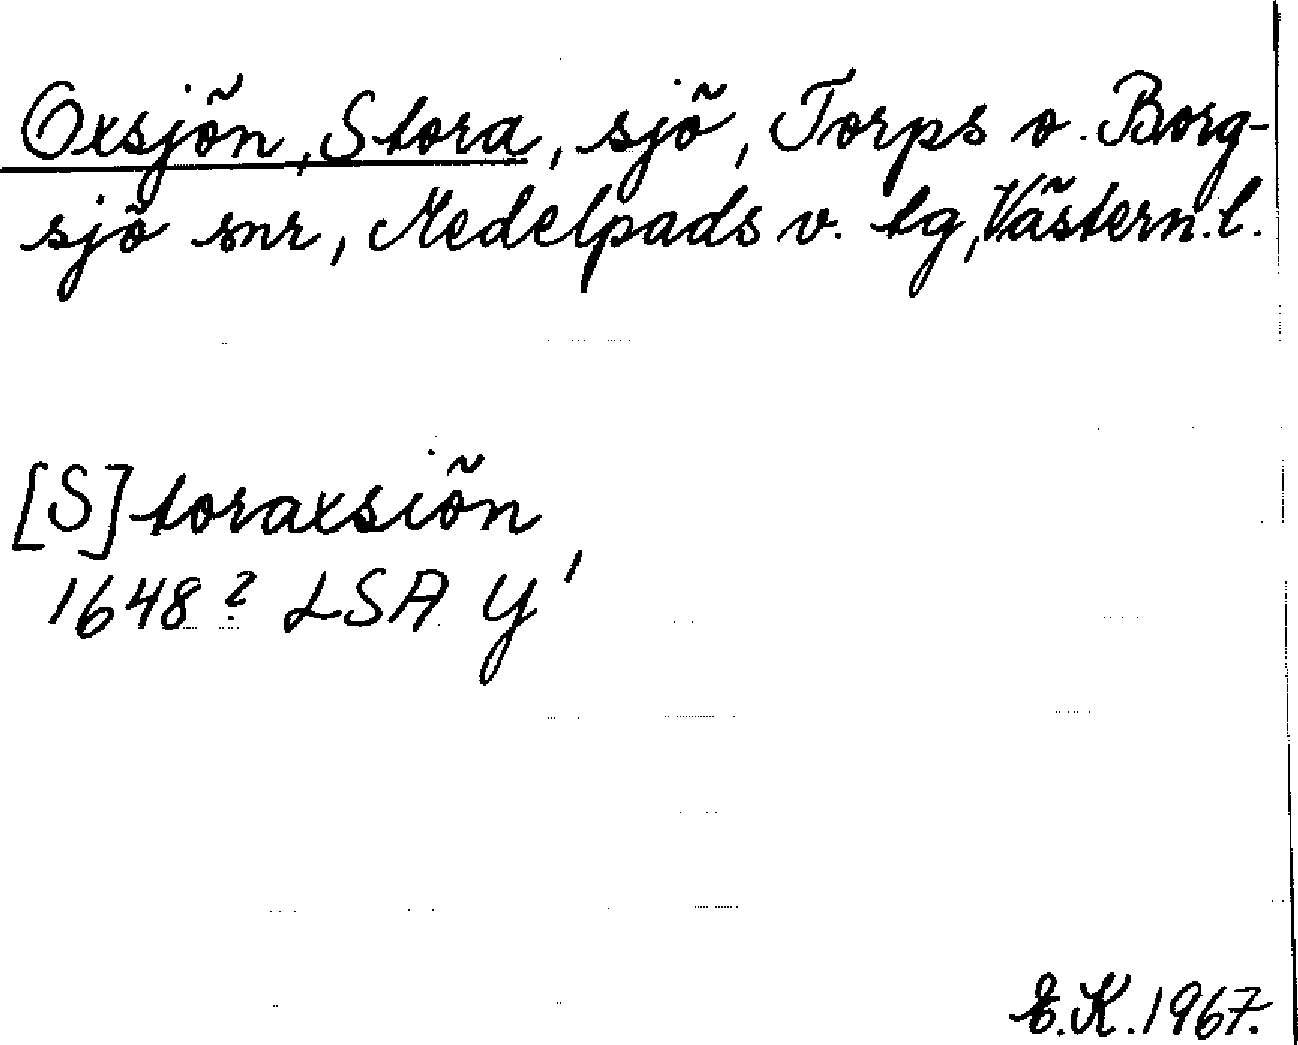 Oxsjön, Stora, sjö, Torps o. Borg-
sjö snr, Medelpads v. tg, Västern.l.
[S]toraxsiön,
1648? LSA Y'
E.K.1967.